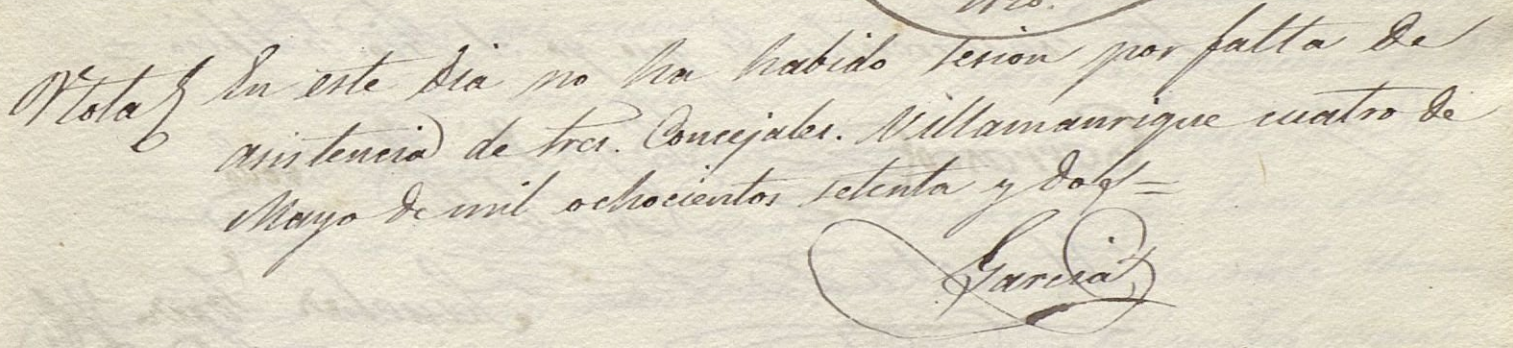 Nota} En este dia no ha habido sesion por falta de
asistencia de tres. Concejales. Villamanrique cuatro de
Mayo de mil ochocientos setenta y dos=
Garcia